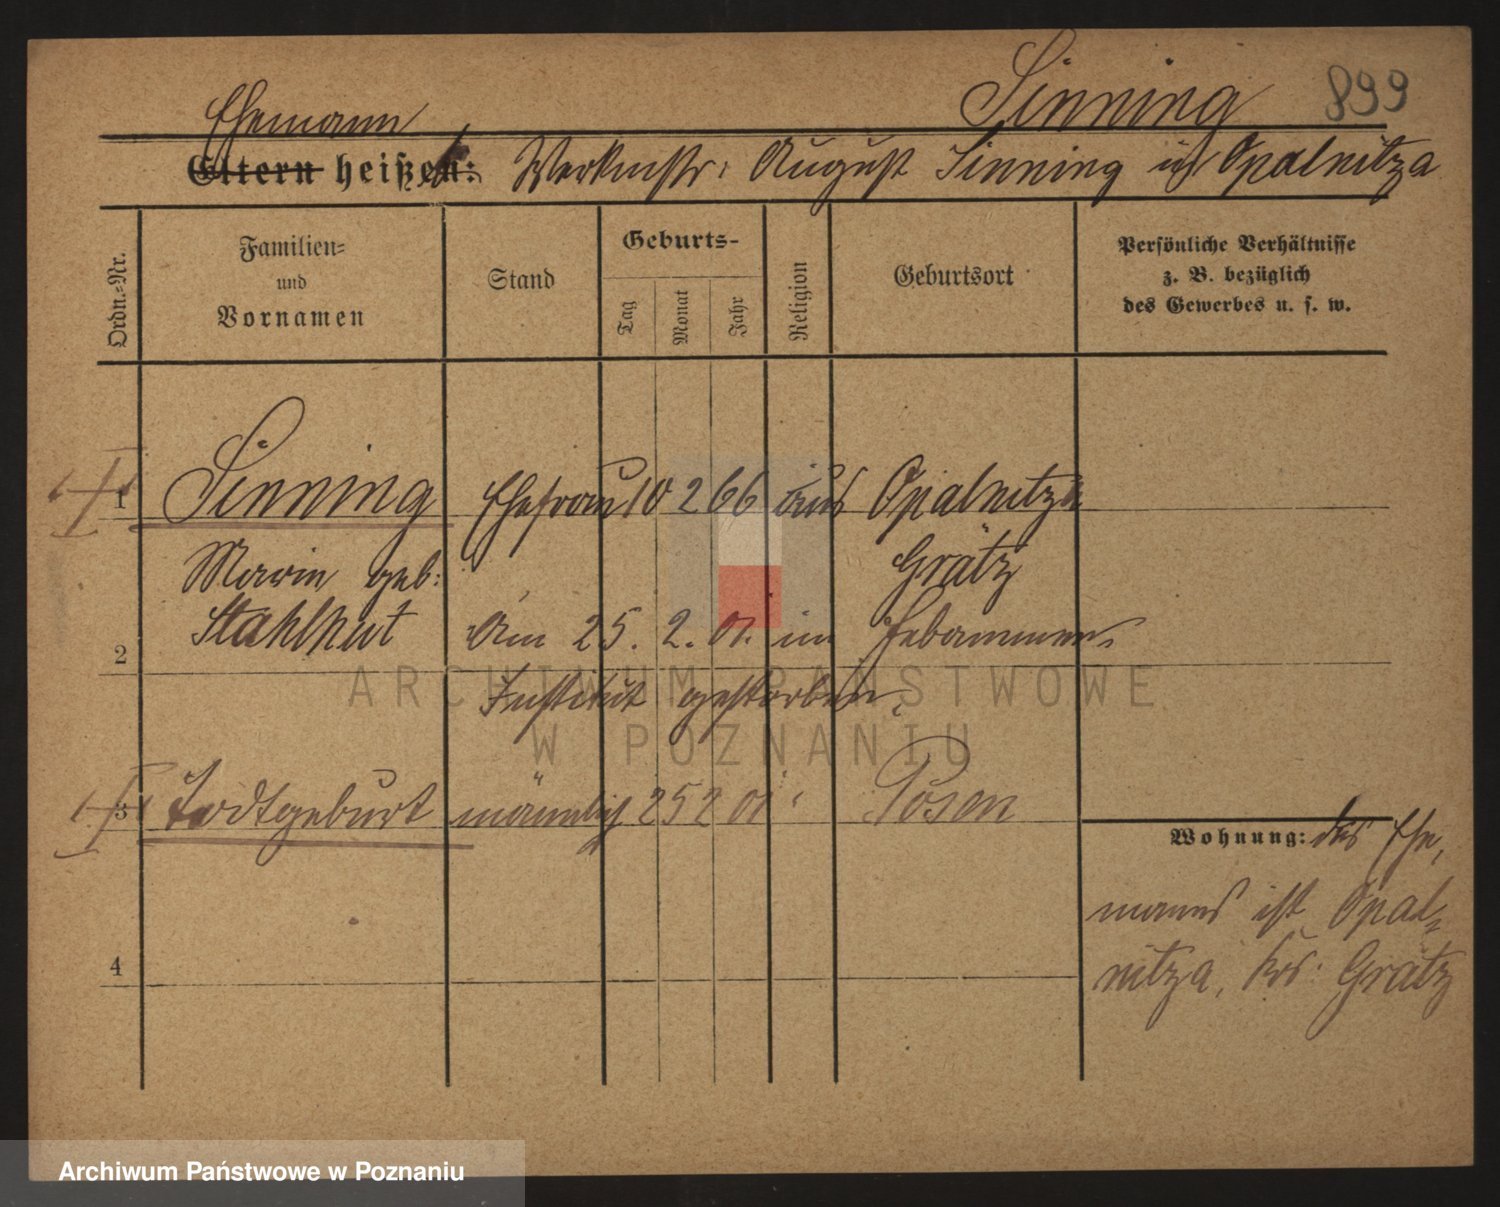 Sinning 899
Ehemann
Eltern heißen: Werkmstr: August Sinning in Opalnitza
Ordn.-Nr.
Familien-
und
Vornamen
Stand
Geburts-
Tag
Monat
Jahr
Religion
Geburtsort
Persönliche Verhältnisse
z. B. bezüglich
des Gewerbes u. s. w.
1 Sinning Ehefrau 10 2 66 aus Opalnitza
Marie geb: Grätz
2 Stahlhut Am 25. 2. 01. im Hebammen-
Institut gestorben.
3 Todtgeburt männlich 25 2 01 Posen
Wohnung: des Ehe-
manns ist Opal-
nitza, Krs: Grätz
4
ARCHIWUM PAŃSTWOWE
W POZNANIU
Archiwum Państwowe w Poznaniu